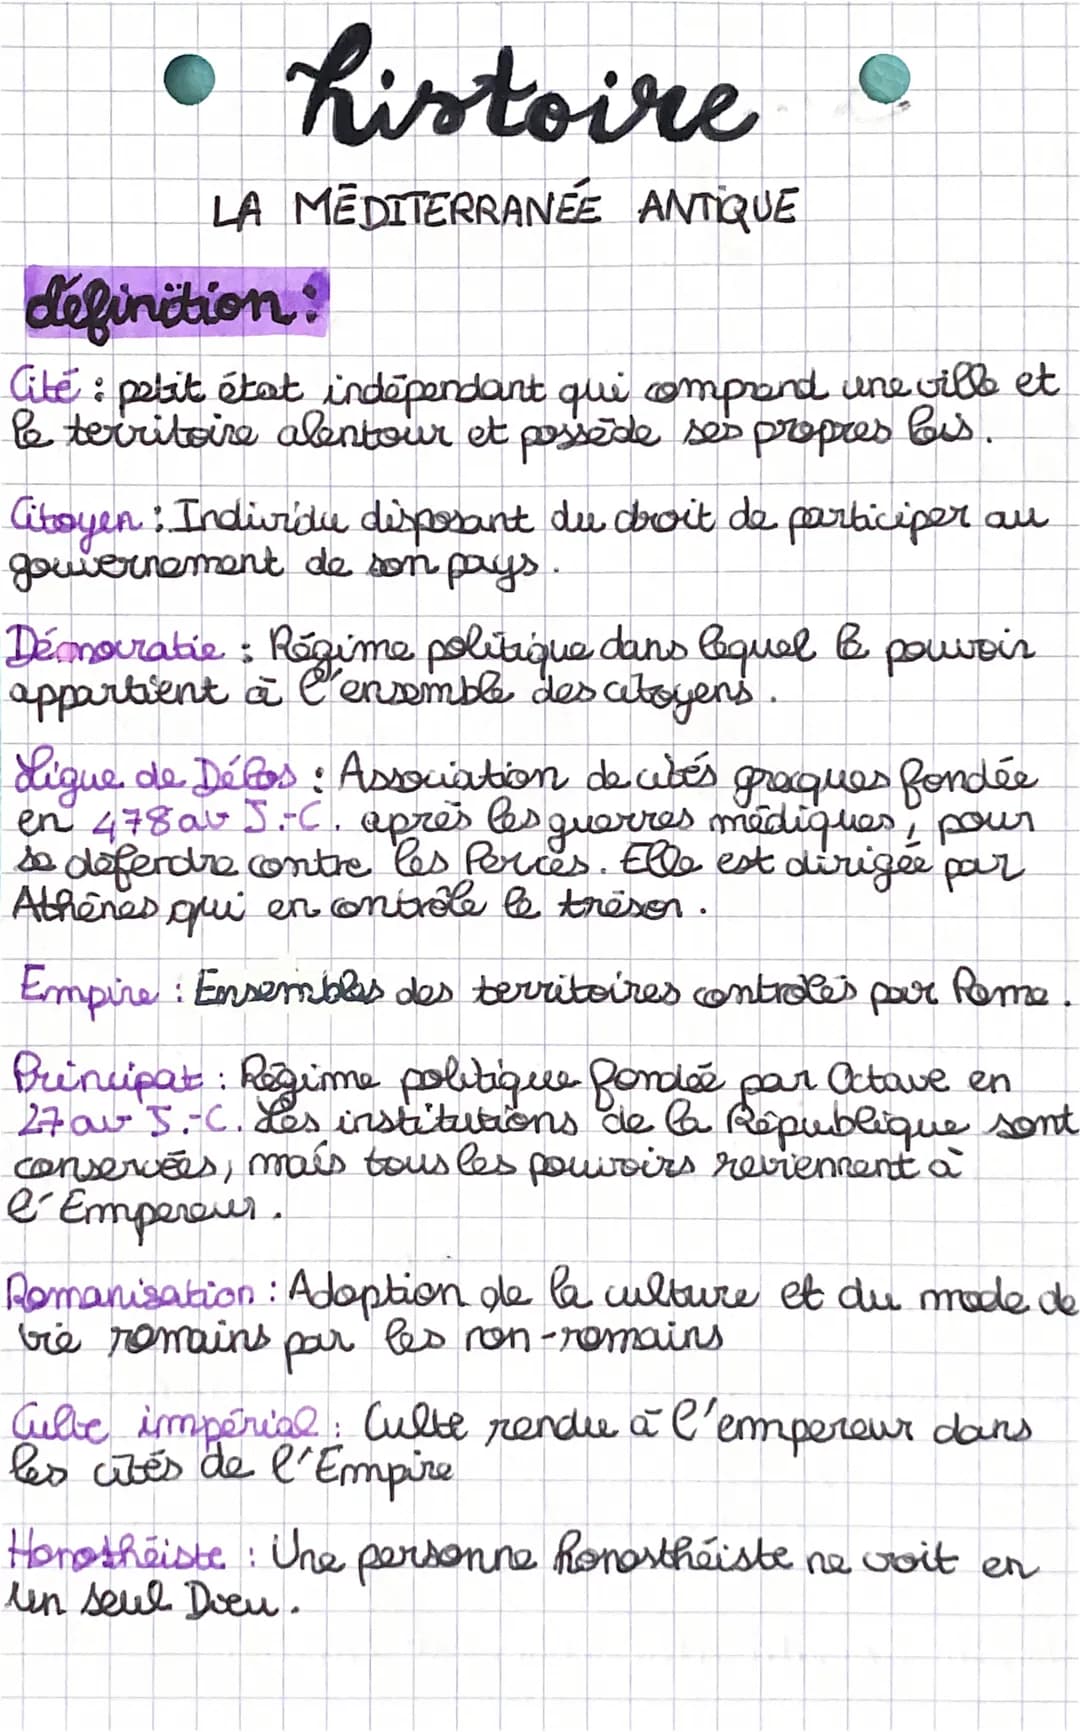 histoire
LA MÉDITERRANÉE ANTIQUE
définition :
Cité : petit état indépendant qui comprend une ville et
le territoire alentour et possède ses propres lois.
Citoyen : Individu disposant du droit de participer au
gouvernement de son pays.
Démocratie : Régime politique dans lequel le pouvoir
appartient à l'ensemble des citoyens.
Ligue de Délos : Association de cités grecques fondée
en 478 av J.-C. après les guerres médiques, pour
se déferdre contre les Perces. Elle est dirigée par
Athènes qui en contrôle le trésor.
Empire : Ensembles des territoires contrôlés par Rome.
Principat : Régime politique fondée par Octave en
27 av J.-C. Les institutions de la République sont
conservées, mais tous les pouvoirs reviennent à
l'Empereur.
Romanisation : Adoption de la culture et du mode de
vie romains par les non-romains
Culte impérial : Culte rendu à l'empereur dans
les cités de l'Empire
Honothéiste : Une personne honosthéiste ne croit en
un seul Dieu.